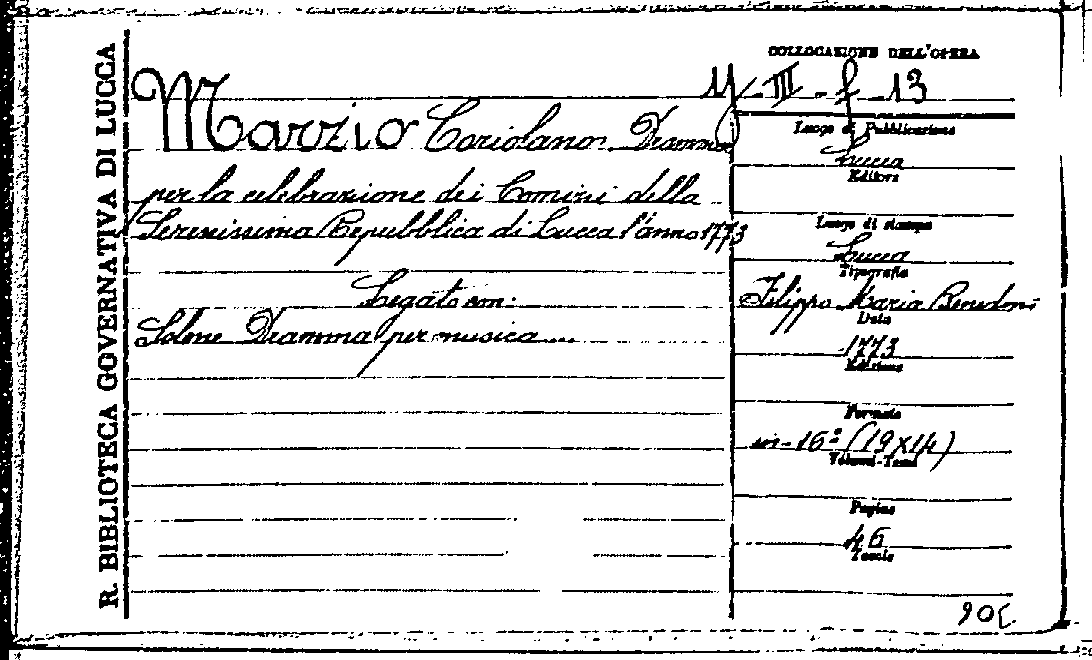 R. BIBLIOTECA GOVERNATIVA DI LUCCA
COLLOCAZIONE DELL'OPERA
III - f - 13
Marzio Coriolano Dramma
per la celebrazione dei Comizi della
Serenissima Repubblica di Lucca l'anno 1773
Legato con:
Solone Dramma per musica ...
Luogo di Pubblicazione
Lucca
Editore
Luogo di stampa
Lucca
Tipografia
Filippo Maria Benedini
Data
1773
Edizione
Formato
in-16º (19x14)
Volumi-Tomi
Pagine
46
Tavole